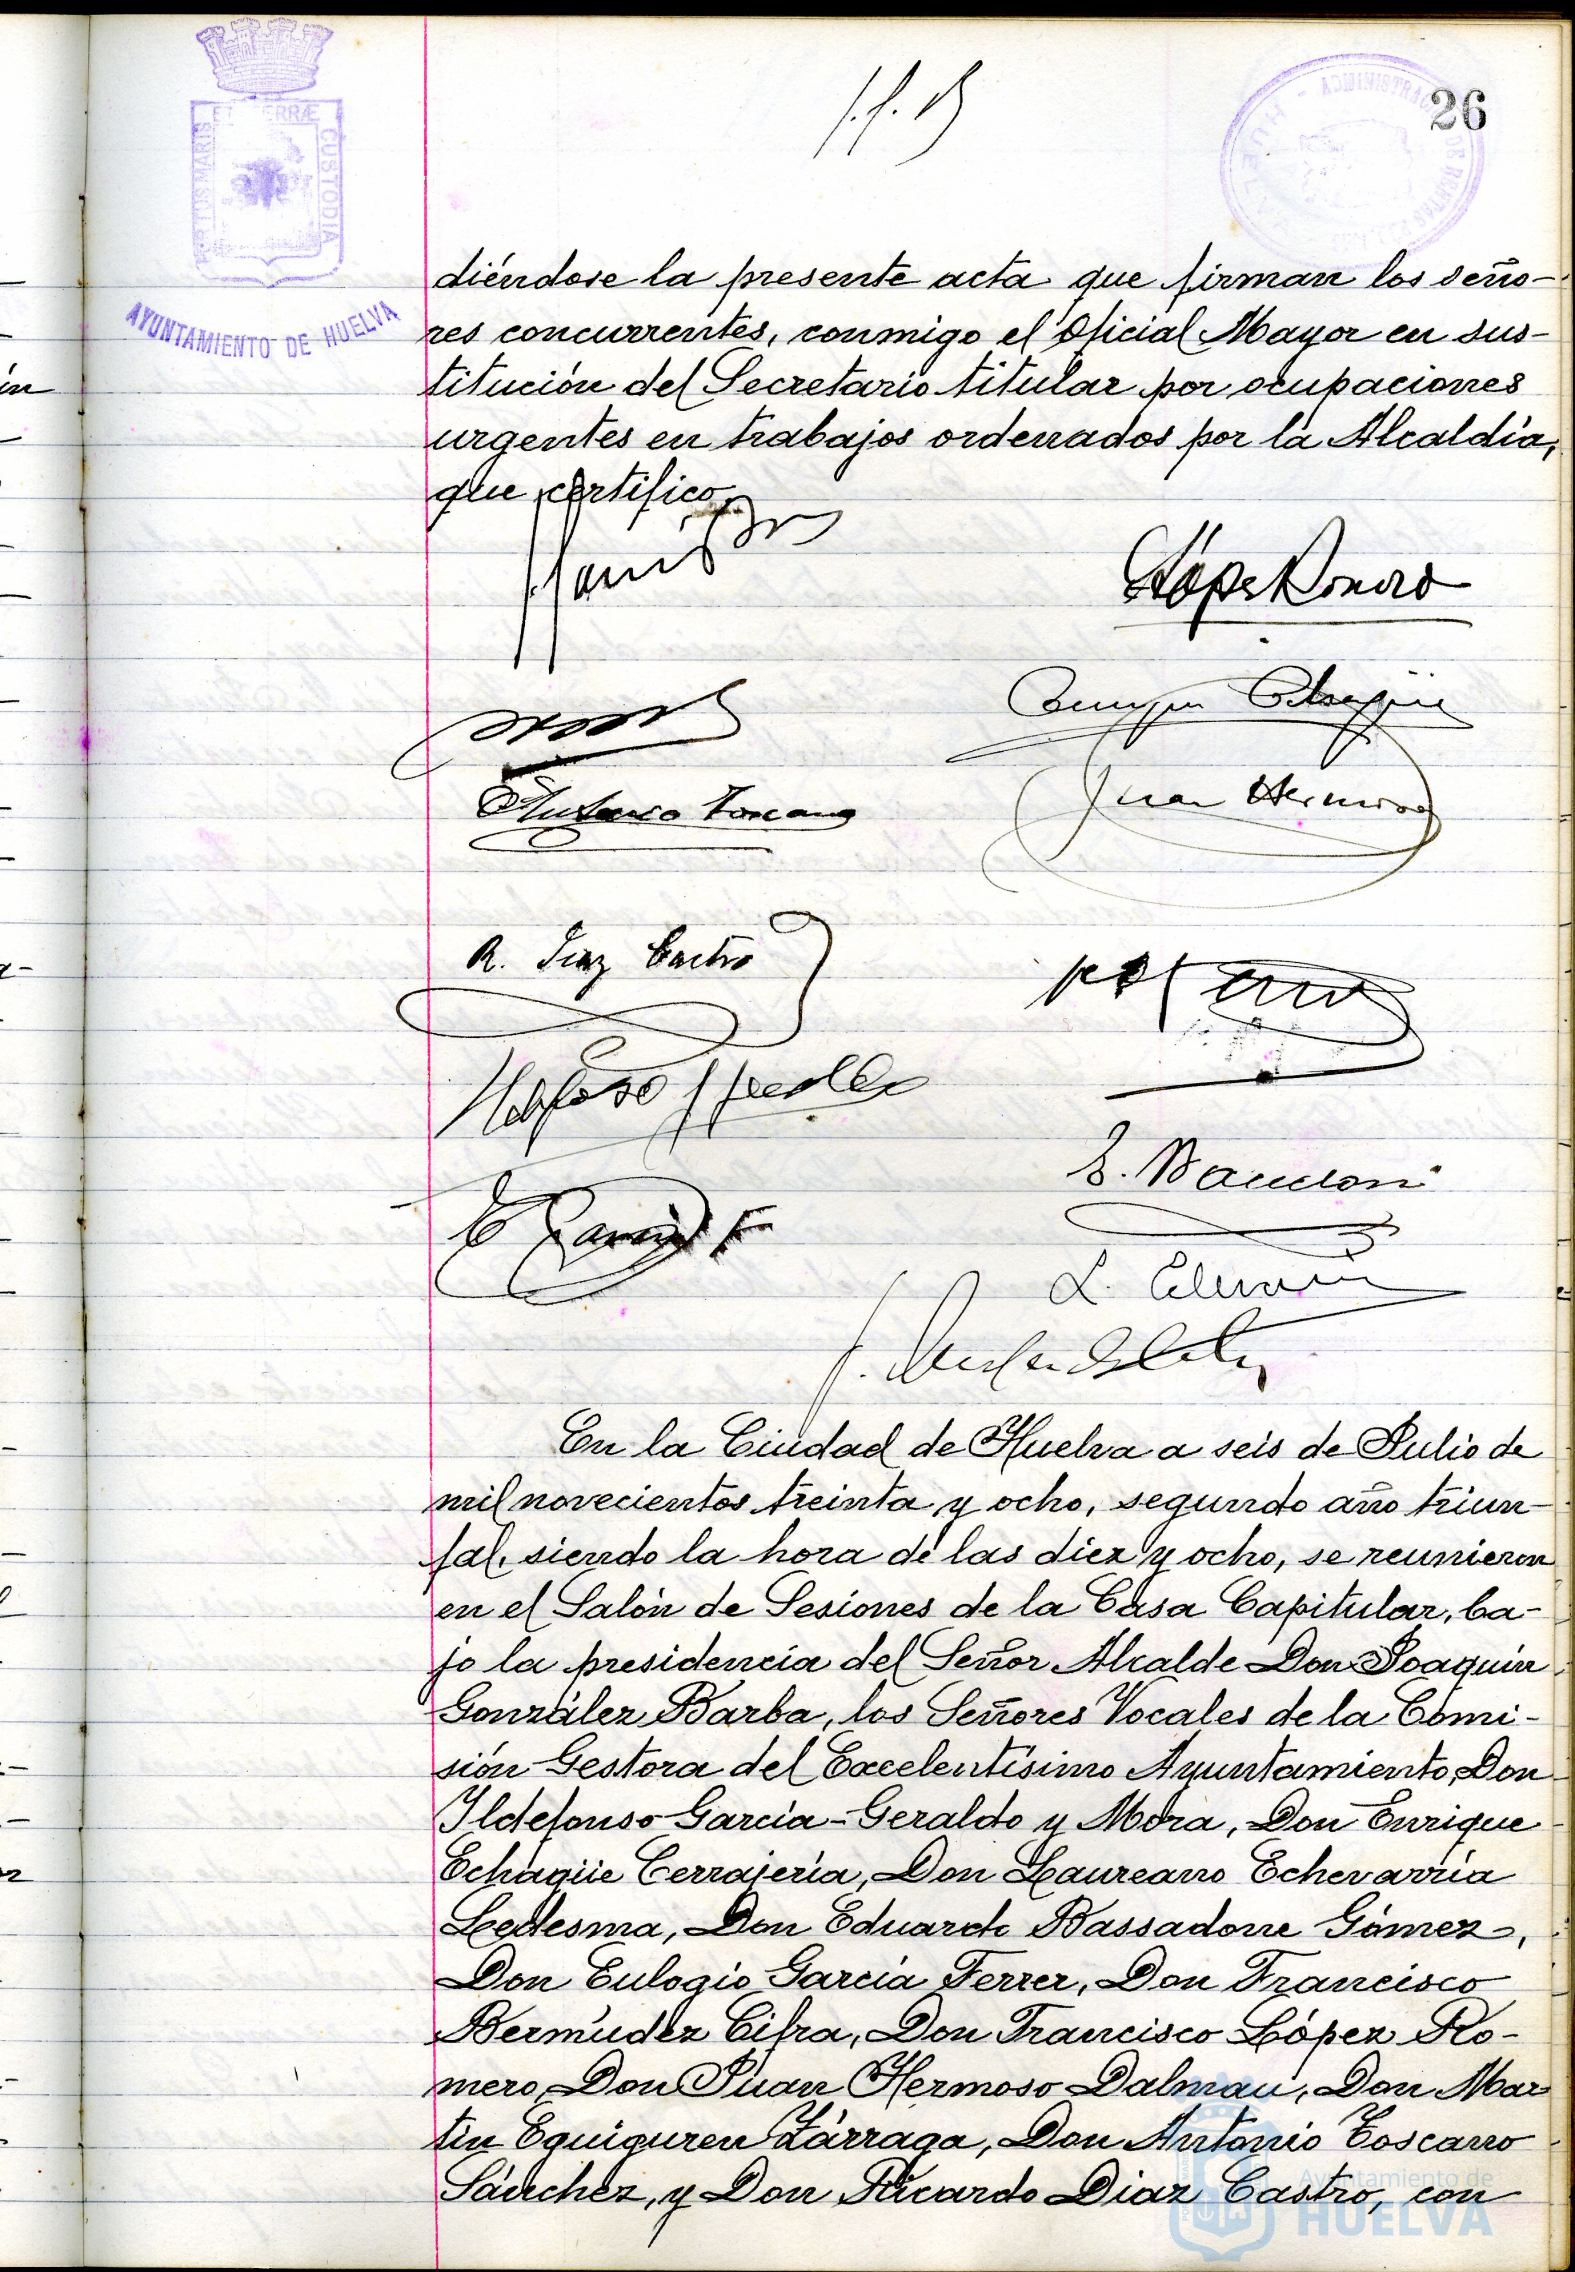 26
PORTUS MARIS
ET TERRÆ
CUSTODIA
AYUNTAMIENTO DE HUELVA
diéndose la presente acta que firman los seño-
res concurrentes, conmigo el Oficial Mayor en sus-
titución del Secretario titular por ocupaciones
urgentes en trabajos ordenados por la Alcaldía,
que certifico.
López Romero
Enrique Echagüe
Antonio Toscano
Juan Hermoso
R. Diaz Castro
E. García F
En la Ciudad de Huelva a seis de Julio de
mil novecientos treinta y ocho, segundo año triun-
fal, siendo la hora de las diez y ocho, se reunieron
en el Salón de Sesiones de la Casa Capitular, ba-
jo la presidencia del Señor Alcalde Don Joaquín
González Barba, los Señores Vocales de la Comi-
sión Gestora del Excelentísimo Ayuntamiento, Don
Ildefonso García-Geraldo y Mora, Don Enrique
Echagüe Cerrajería, Don Laureano Echevarría
Ledesma, Don Eduardo Bassadone Gómez,
Don Eulogio García Ferrer, Don Francisco
Bermúdez Cifra, Don Francisco López Ro-
mero, Don Juan Hermoso Dalmau, Don Mar
tín Eguiguren Zárraga, Don Antonio Toscano
Sánchez, y Don Ricardo Diaz Castro, con
Ayuntamiento de
HUELVA